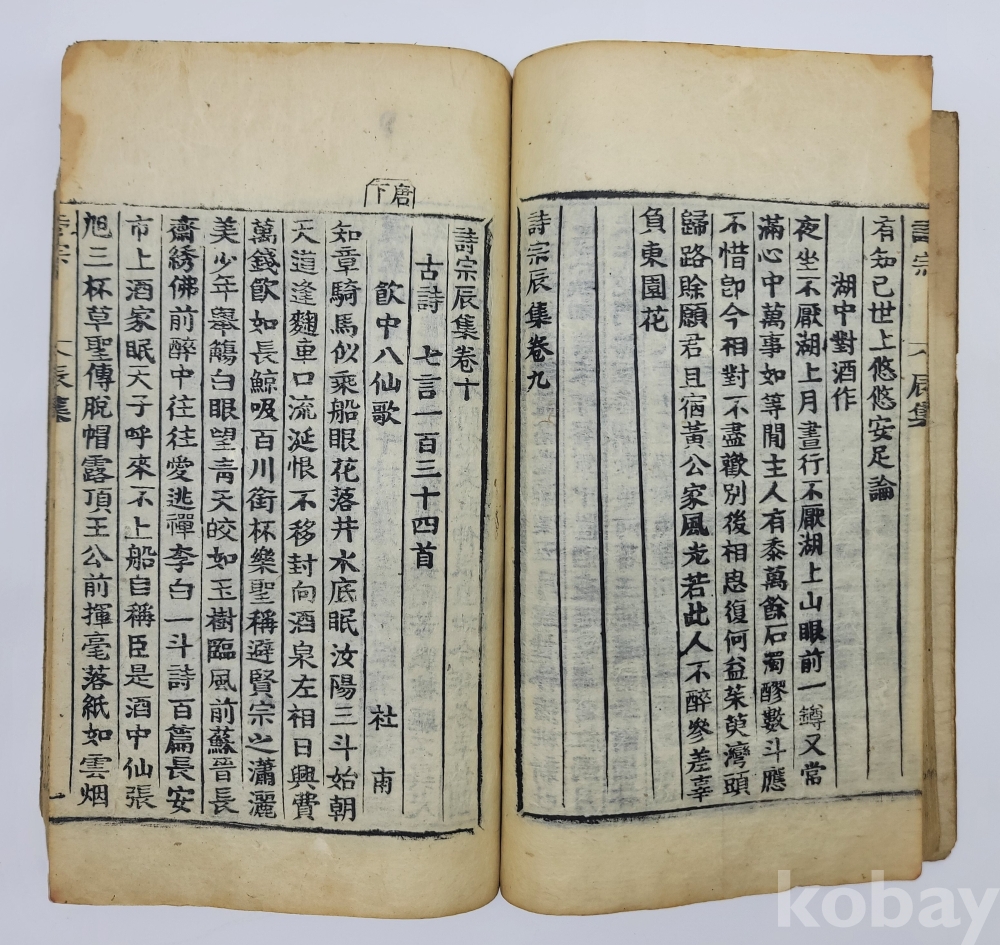 詩宗 辰集
有知已世上悠悠安足論
湖中對酒作
夜坐不厭湖上月晝行不厭湖上山眼前一鐏又常
滿心中萬事如等閒主人有黍萬餘石濁醪數斗應
不惜卽今相對不盡歡別後相思復何益茱萸灣頭
歸路賖願君且宿黃公家風光若此人不醉參差辜
負東園花
詩宗辰集卷九
唐下
詩宗辰集卷十
古詩 七言一百三十四首
飮中八仙歌 社 南
知章騎馬似乘船眼花落井水底眠汝陽三斗始朝
天道逢麴車口流涎恨不移封向酒泉左相日興費
萬錢飮如長鯨吸百川街杯樂聖稱避賢宗之瀟灑
美少年舉觴白眼望靑天皎如玉樹臨風前蘇晉長
齋綉佛前醉中往往愛逃禪李白一斗詩百篇長安
市上酒家眠天子呼來不上船自稱臣是酒中仙張
旭三杯草聖傳脫帽露頂王公前揮毫落紙如雲烟
詩宗 辰集 一
kobay